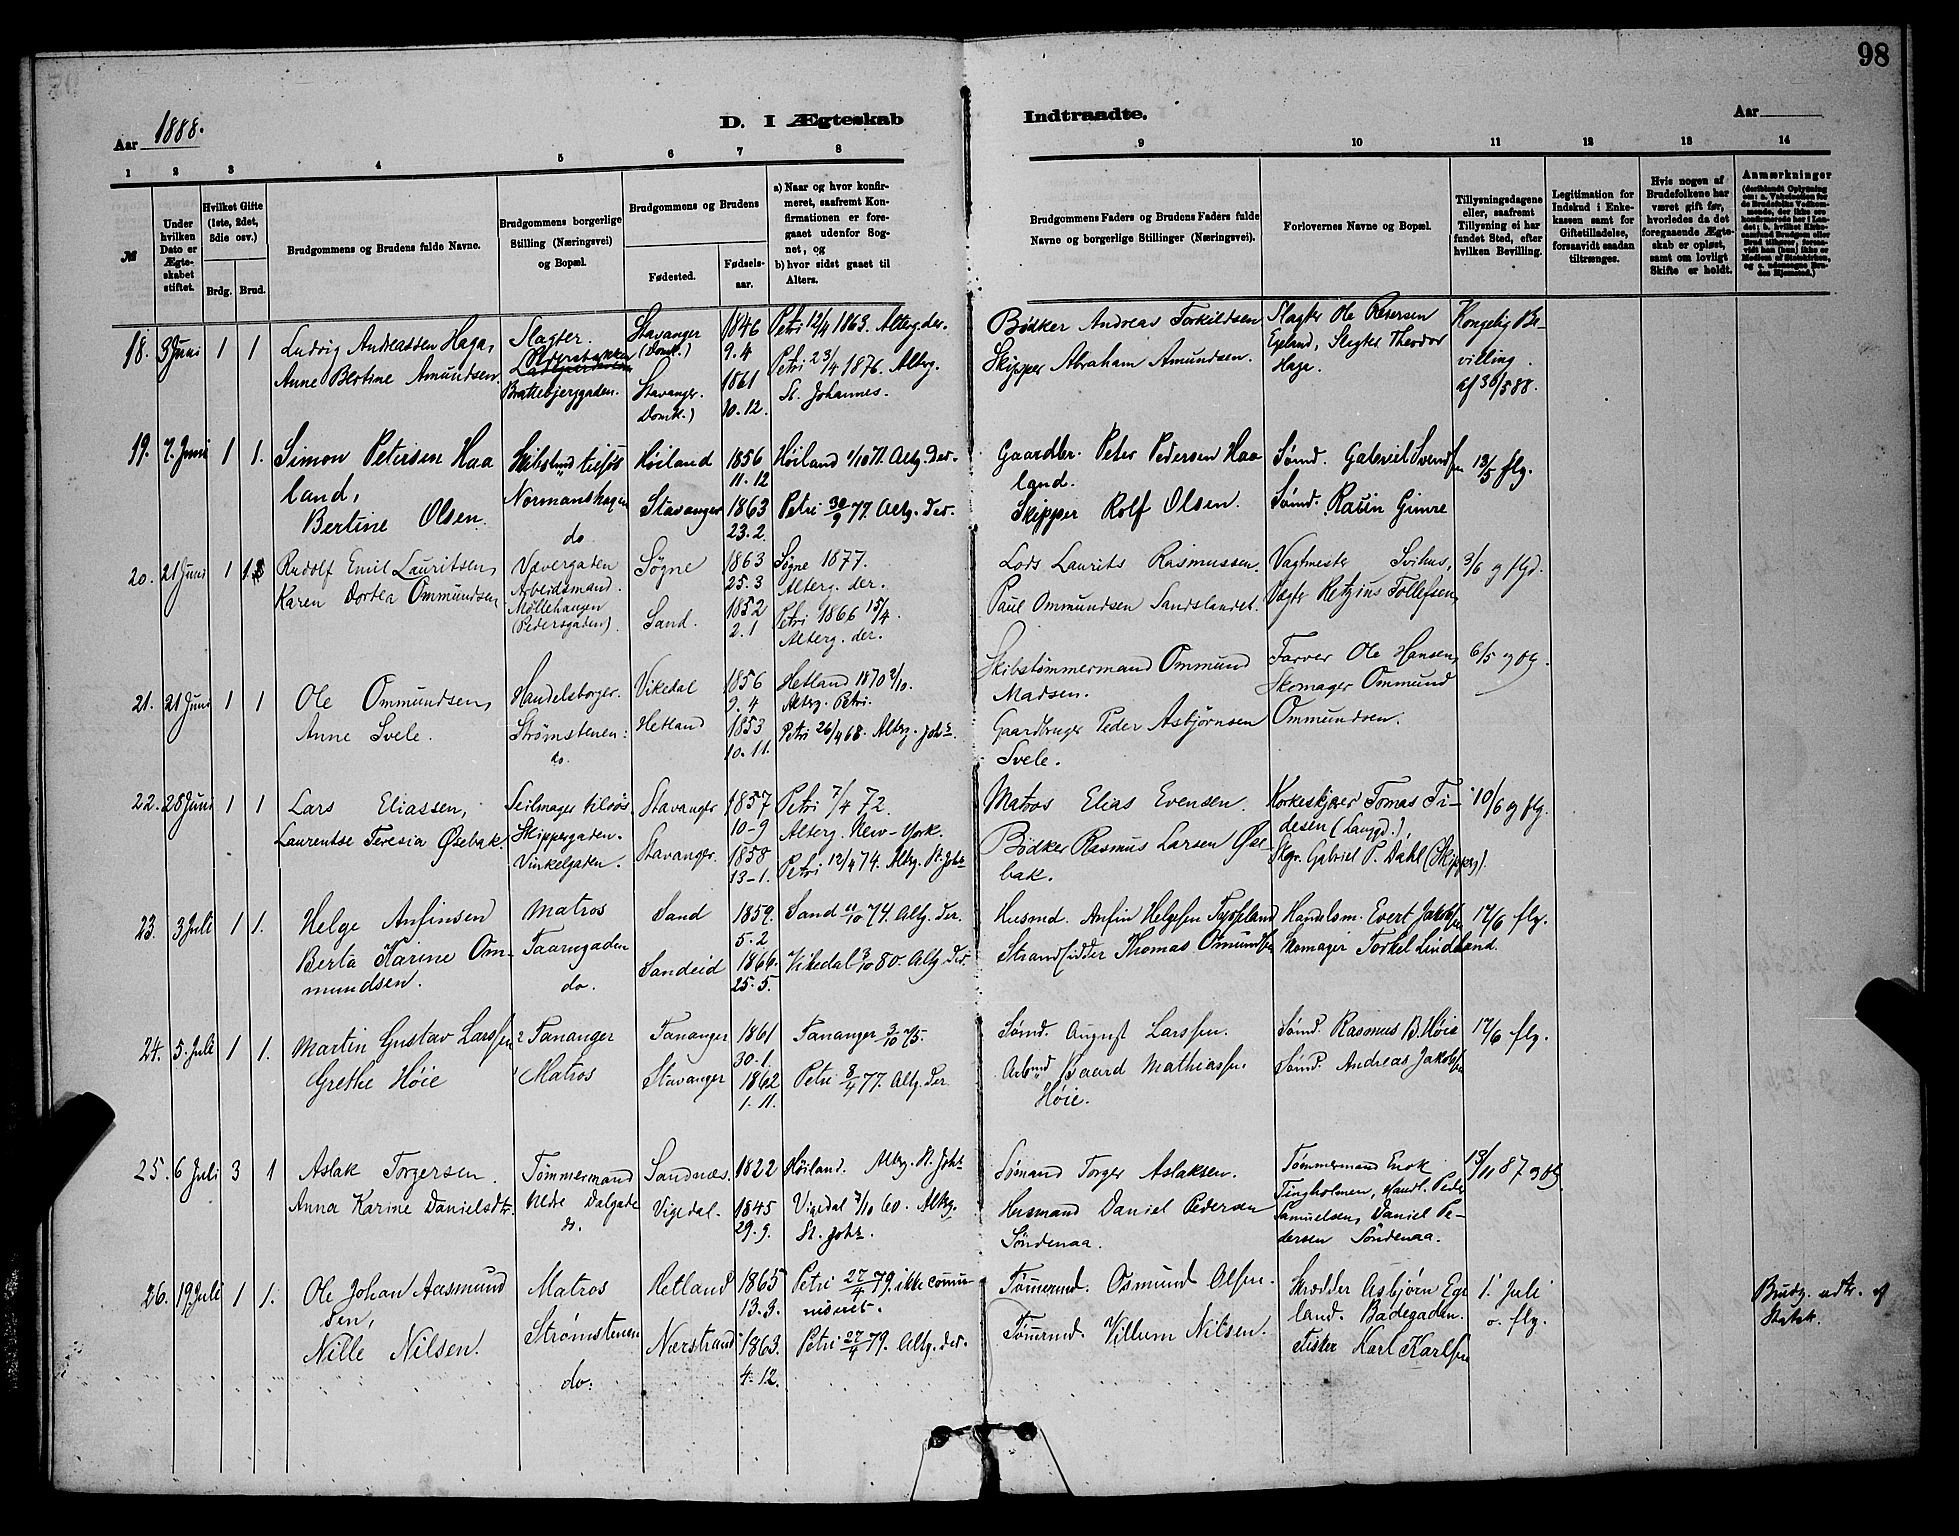 98
Aar 1888.
D. I Ægteskab Indtraadte.
Aar
1 2 3 4 5 6 7 8 9 10 11 12 13 14
№
Under hvilken Dato er Ægteskabet stiftet.
Hvilket Gifte (1ste, 2det, 3die osv.)
Brdg. Brud.
Brudgommens og Brudens fulde Navne.
Brudgommens borgerlige Stilling (Næringsvei) og Bopæl.
Brudgommens og Brudens
Fødested.
Fødselsaar.
a) Naar og hvor konfirmeret, saafremt Konfirmationen er foregaaet udenfor Sognet, og
b) hvor sidst gaaet til Alters.
Brudgommens Faders og Brudens Faders fulde Navne og borgerlige Stillinger (Næringsvei).
Forlovernes Navne og Bopæl.
Tillysningsdagene eller, saafremt Tillysning ei har fundet Sted, efter hvilken Bevilling.
Legitimation for Indskud i Enkekassen samt for Giftetilladelse, forsaavidt saadan tiltrænges.
Hvis nogen af Brudefolkene har været gift før, hvorledes da det foregaaende Ægteskab er opløst, samt om lovligt Skifte er holdt.
Anmærkninger
18. 3 Juni 1 1
Ludvig Andreassen Haga,
Anne Bertine Amundsen
Slagter.
Brattebjerggaden.
Stavanger (Domk.)
Stavanger. Domk.)
1846
9. 4
1861
10. 12.
Petri 12/4 1863. Alterg. der.
Petri 23/4 1876. Altrg.
St. Johannes.
Bødker Andreas Torkildsen
Skipper Abraham Amundsen.
Slagter Ole Petersen
Egeland, Slagter Theodor
Haga.
Kongelig Be-
villing
af 30/5 88.
19. 7. Juni 1 1.
Simon Petersen Haa
land,
Bertine Olsen.
Skibstmd tilsøs
Normanshagen
do
Høiland
Stavanger
1856
11. 12
1863
23. 2.
Høiland 1/10 71. Altg. der.
Petri 30/9 77. Altg. der.
Gaardbr. Peter Pedersen Haa
land.
Skipper Rolf Olsen.
Sømd. Gabriel Svendsen
Sømd. Rasin Gimre
13/5 flg.
20. 21 Juni 1 1
Rudolf Emil Lauritsen,
Karen Dortea Ommundsen
Vævergaden
Arbeidsmand.
Møllehaugen
Pedersgaden).
Søgne
Sand.
1863
25. 3
1852
2. 1
Søgne 1877.
Alterg. der.
Petri 1866 15/4.
Alterg. der.
Lods Laurits Rasmussen.
Paul Ommundsen Sandslandet.
Vagtmester Svihus,
Vægter Retzius Tollefsen,
3/6 og flgd.
21. 21 Juni 1 1
Ole Ommundsen,
Anne Svele.
Handelsborger.
Strømstenen:
do.
Vikedal
Hetland
1856
9. 4
1853
10. 11.
Hetland 1870 2/10.
Alterg. Petri.
Petri 26/4 68. Alterg. Johs.
Skibstømmermand Ommund
Madsen.
Gaardbruger Peder Asbjørnsen
Svele.
Farver Ole Hansen,
Skomager Ommund
Ommundsen.
6/5 og flg.
22. 28 Juni 1 1
Lars Eliassen,
Laurentse Teresia Øsebak.
Seilmager tilsøs
Skippergaden.
Vinkelgaden.
Stavanger
Stavanger.
1857
10-9
1858
13-1.
Petri 7/4 72.
Alterg. New-York.
Petri 12/4 74. Altrg. St. Johs
Matros Elias Evensen.
Bødker Rasmus Larsen Øse
bak.
Korkeskjærer Tomas Ti-
desen (Langgd.),
Skgr. Gabriel P. Dahl (Skipperg).
10/6 og flg.
23. 3 Juli 1 1.
Helge Anfinsen
Berta Karine Om-
mundsen.
Matros
Taarngaden
do.
Sand
Sandeid
1859.
5. 2
1866.
25. 5.
Sand 11/10 74. Altg. der.
Vikedal 3/10 80. Altg. der.
Husmd. Anfin Helgesen
Strandsidder Thomas Omundsen
Handelsm. Evert Jakobsen
Skomager Torkel Lindland.
17/6 flg.
24. 5. Juli 1 1.
Martin Gustav Larssen
Grethe Høie
Tananger
Matros
Tananger
Stavanger
1861
30-1.
1862
1. 11.
Tananger 3/10 75.
Petri 8/4 77. Altg. der
Sømd. August Larssen.
Arbmd Baard Mathiassen
Høie.
Sømd. Rasmus B. Høie
Sømd. Andreas Jakobsen
17/6 flg.
25. 6 Juli 3 1
Aslak Torgersen.
Anna Karine Danielsdtr.
Tømmermand
Nedre Dalgade
do.
Sandnæs.
Vigedal.
1822
1845
29. 9.
Høiland. Altrg. St. Johs
Vigedal 7/10 60. Altrg.
St. Johs.
Sømand Torger Aslaksen.
Husmand Daniel Pedersen
Søndenaa.
Tømmermand Enok
Tingholmen, Handl. Peder
Samuelsen, Daniel Pe-
dersen Søndenaa.
13/11 87 og flg.
26. 19 Juli 1 1.
Ole Johan Aasmund
sen,
Nille Nilsen.
Matros
Strømstenen
do.
Hetland
Nærstrand
1865
13. 3.
1863.
4. 12.
Petri 27/4 79. ikke commu-
niceret.
Petri 27/4 79. Altg. der.
Tømermd. Osmund Olsen.
Tømermd. Villum Nilsen.
Skrædder Asbjørn Ege
land. Badegaden.
Fisker Karl Karlsen
1. Juli
o. flg.
Brudg. udtr. af
Statsk.